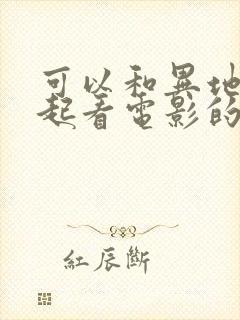 可以和異地
起看電影的
紅辰斷